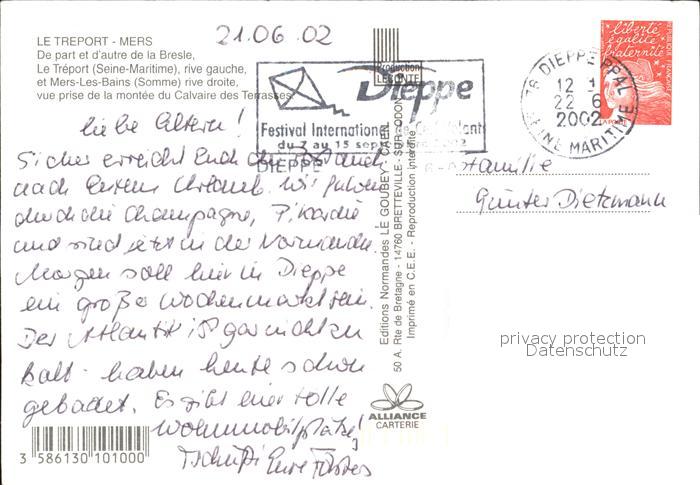 21.06.02
LE TREPORT - MERS
De part et d'autre de la Bresle,
Le Tréport (Seine-Maritime), rive gauche,
et Mers-Les-Bains (Somme) rive droite,
vue prise de la montée du Calvaire des Terrasses
Liebe Eltern!
Sicher erreicht Euch die
nach Eurem Urlaub. Wir fuhren
durch die Champagne, Picardie
und sind jetzt in der Normandie.
Morgen soll hier in Dieppe
ein großer Wochenmarkt sein.
Der Atlantik ist gar nicht so
kalt - haben heute schon
gebadet. Es gibt hier tolle
Wohnmobilplätze!
Tschüßi Eure
3 586130 101000
Production
LECONTE
Dieppe
Festival International de
du 7 au 15 septembre 2002
DIEPPE
Editions Normandes LE GOUBEY - CAEN
50 A. Rte de Bretagne - 14760 BRETTEVILLE-SUR-ODON
Imprimé en C.E.E. - Reproduction interdite
ALLIANCE
CARTERIE
76 DIEPPE PPAL
12 H
22 6
2002
SEINE MARITIME
liberté
égalité
fraternité
LA POSTE
Familie
Günter Dietzmann
privacy protection
Datenschutz